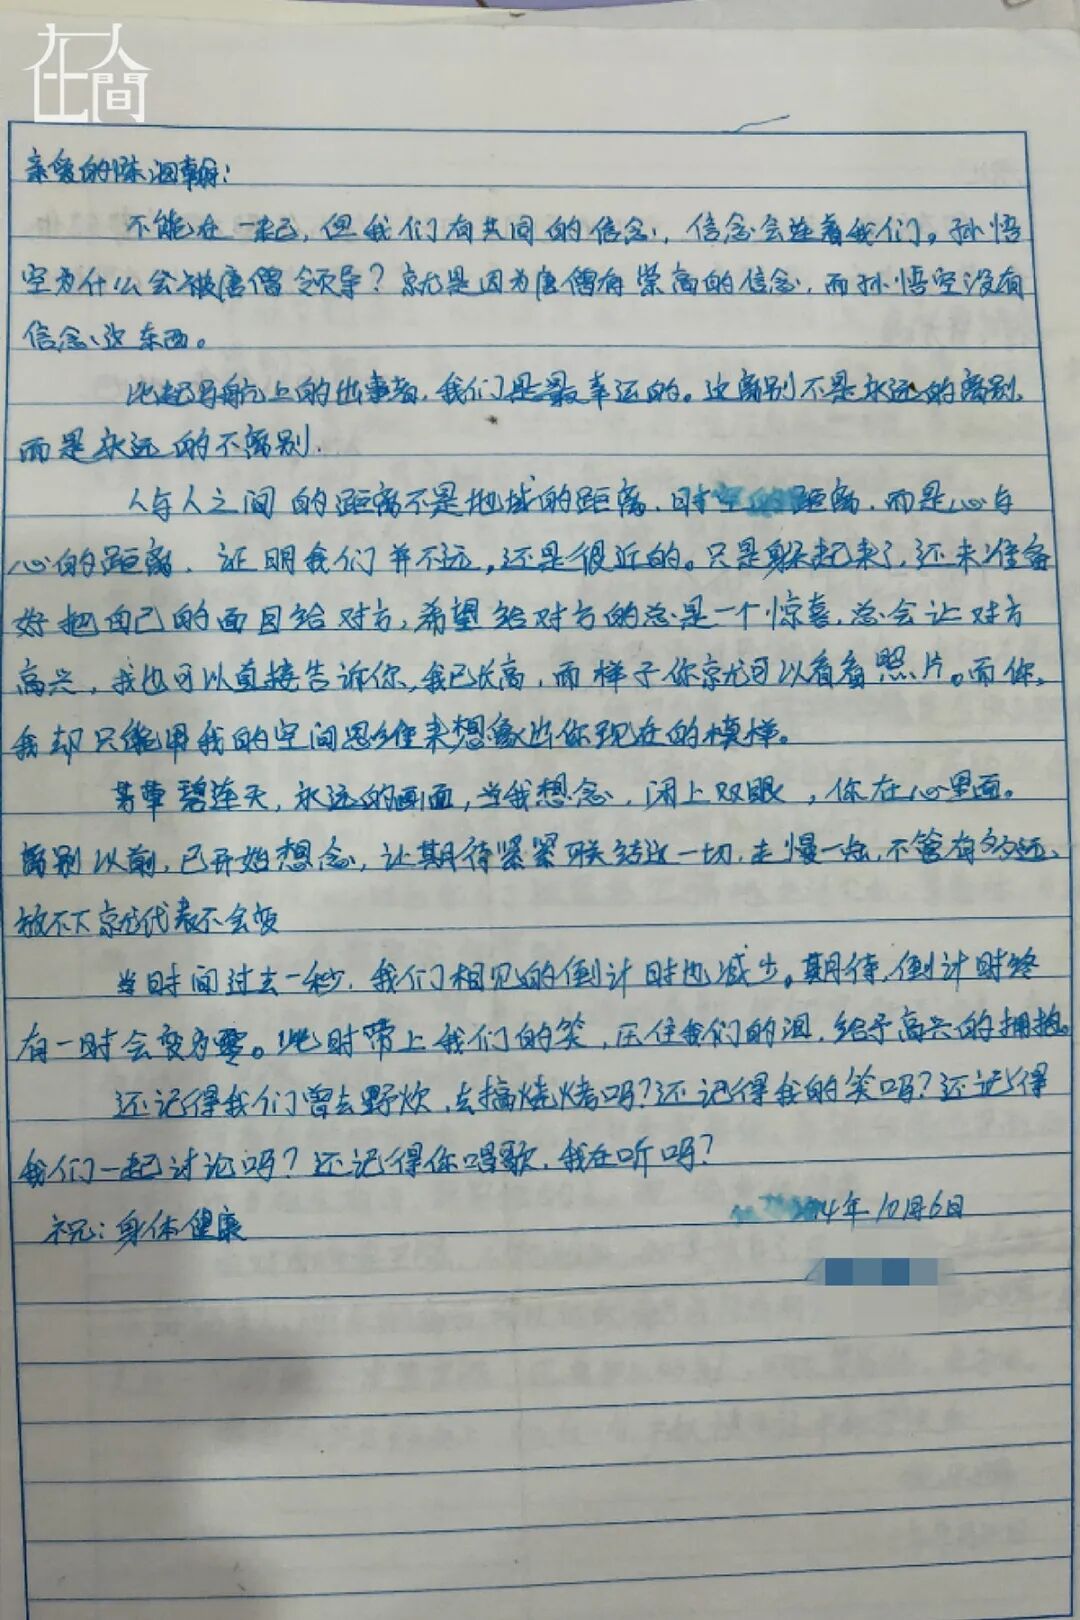 在人間
亲爱的陈泗翰：
不能在一起，但我们有共同的信念，信念会连着我们。孙悟
空为什么会被唐僧领导？就是因为唐僧有崇高的信念，而孙悟空没有
信念这东西。
比起马航上的出事者，我们是最幸运的。这离别不是永远的离别，
而是永远的不离别.
人与人之间的距离不是地域的距离、时空的距离，而是心与
心的距离，证明我们并不远，还是很近的。只是躲起来了，还未准备
好把自己的面目给对方，希望给对方的总是一个惊喜，总会让对方
高兴，我也可以直接告诉你，我已长高，而样子你就可以看看照片。而你，
我却只能用我的空间思维来想象出你现在的模样。
芳草碧连天，永远的画面，当我想念，闭上双眼，你在心里面。
离别以前，已开始想念，让期待紧紧联结这一切，走慢一点，不管有多远，
放不下就代表不会变
当时间过去一秒，我们相见的倒计时也减少。期待，倒计时终
有一时会变为零。此时带上我们的笑，压住我们的泪，给予高兴的拥抱。
还记得我们曾去野炊，去搞烧烤吗？还记得我的笑吗？还记得
我们一起讨论吗？还记得你唱歌，我在听吗？
祝：身体健康
14年10月6日